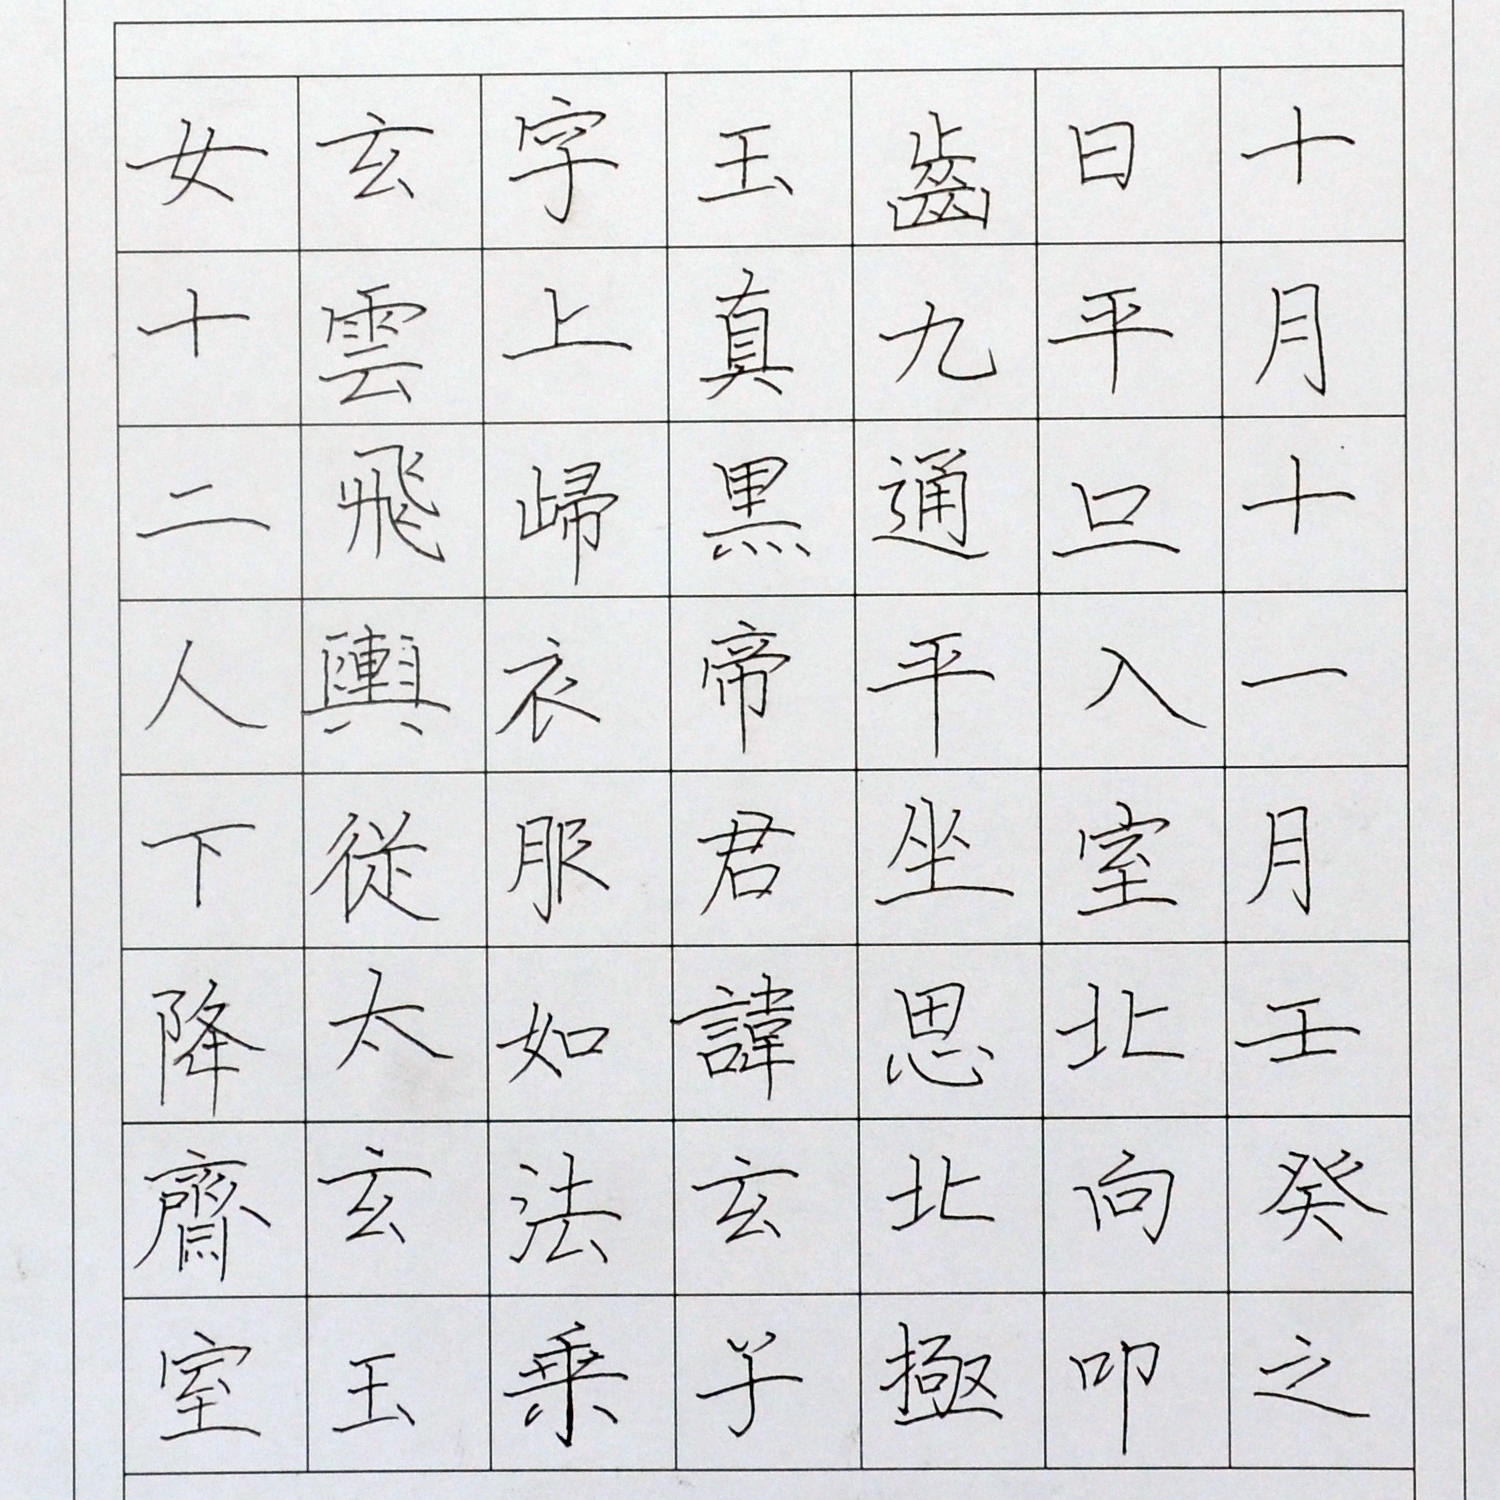 十月十一月壬癸之
日平旦入室北向叩
齒九通平坐思北極
玉真黑帝君諱玄子
字上歸衣服如法乘
玄雲飛輿從太玄玉
女十二人下降齋室